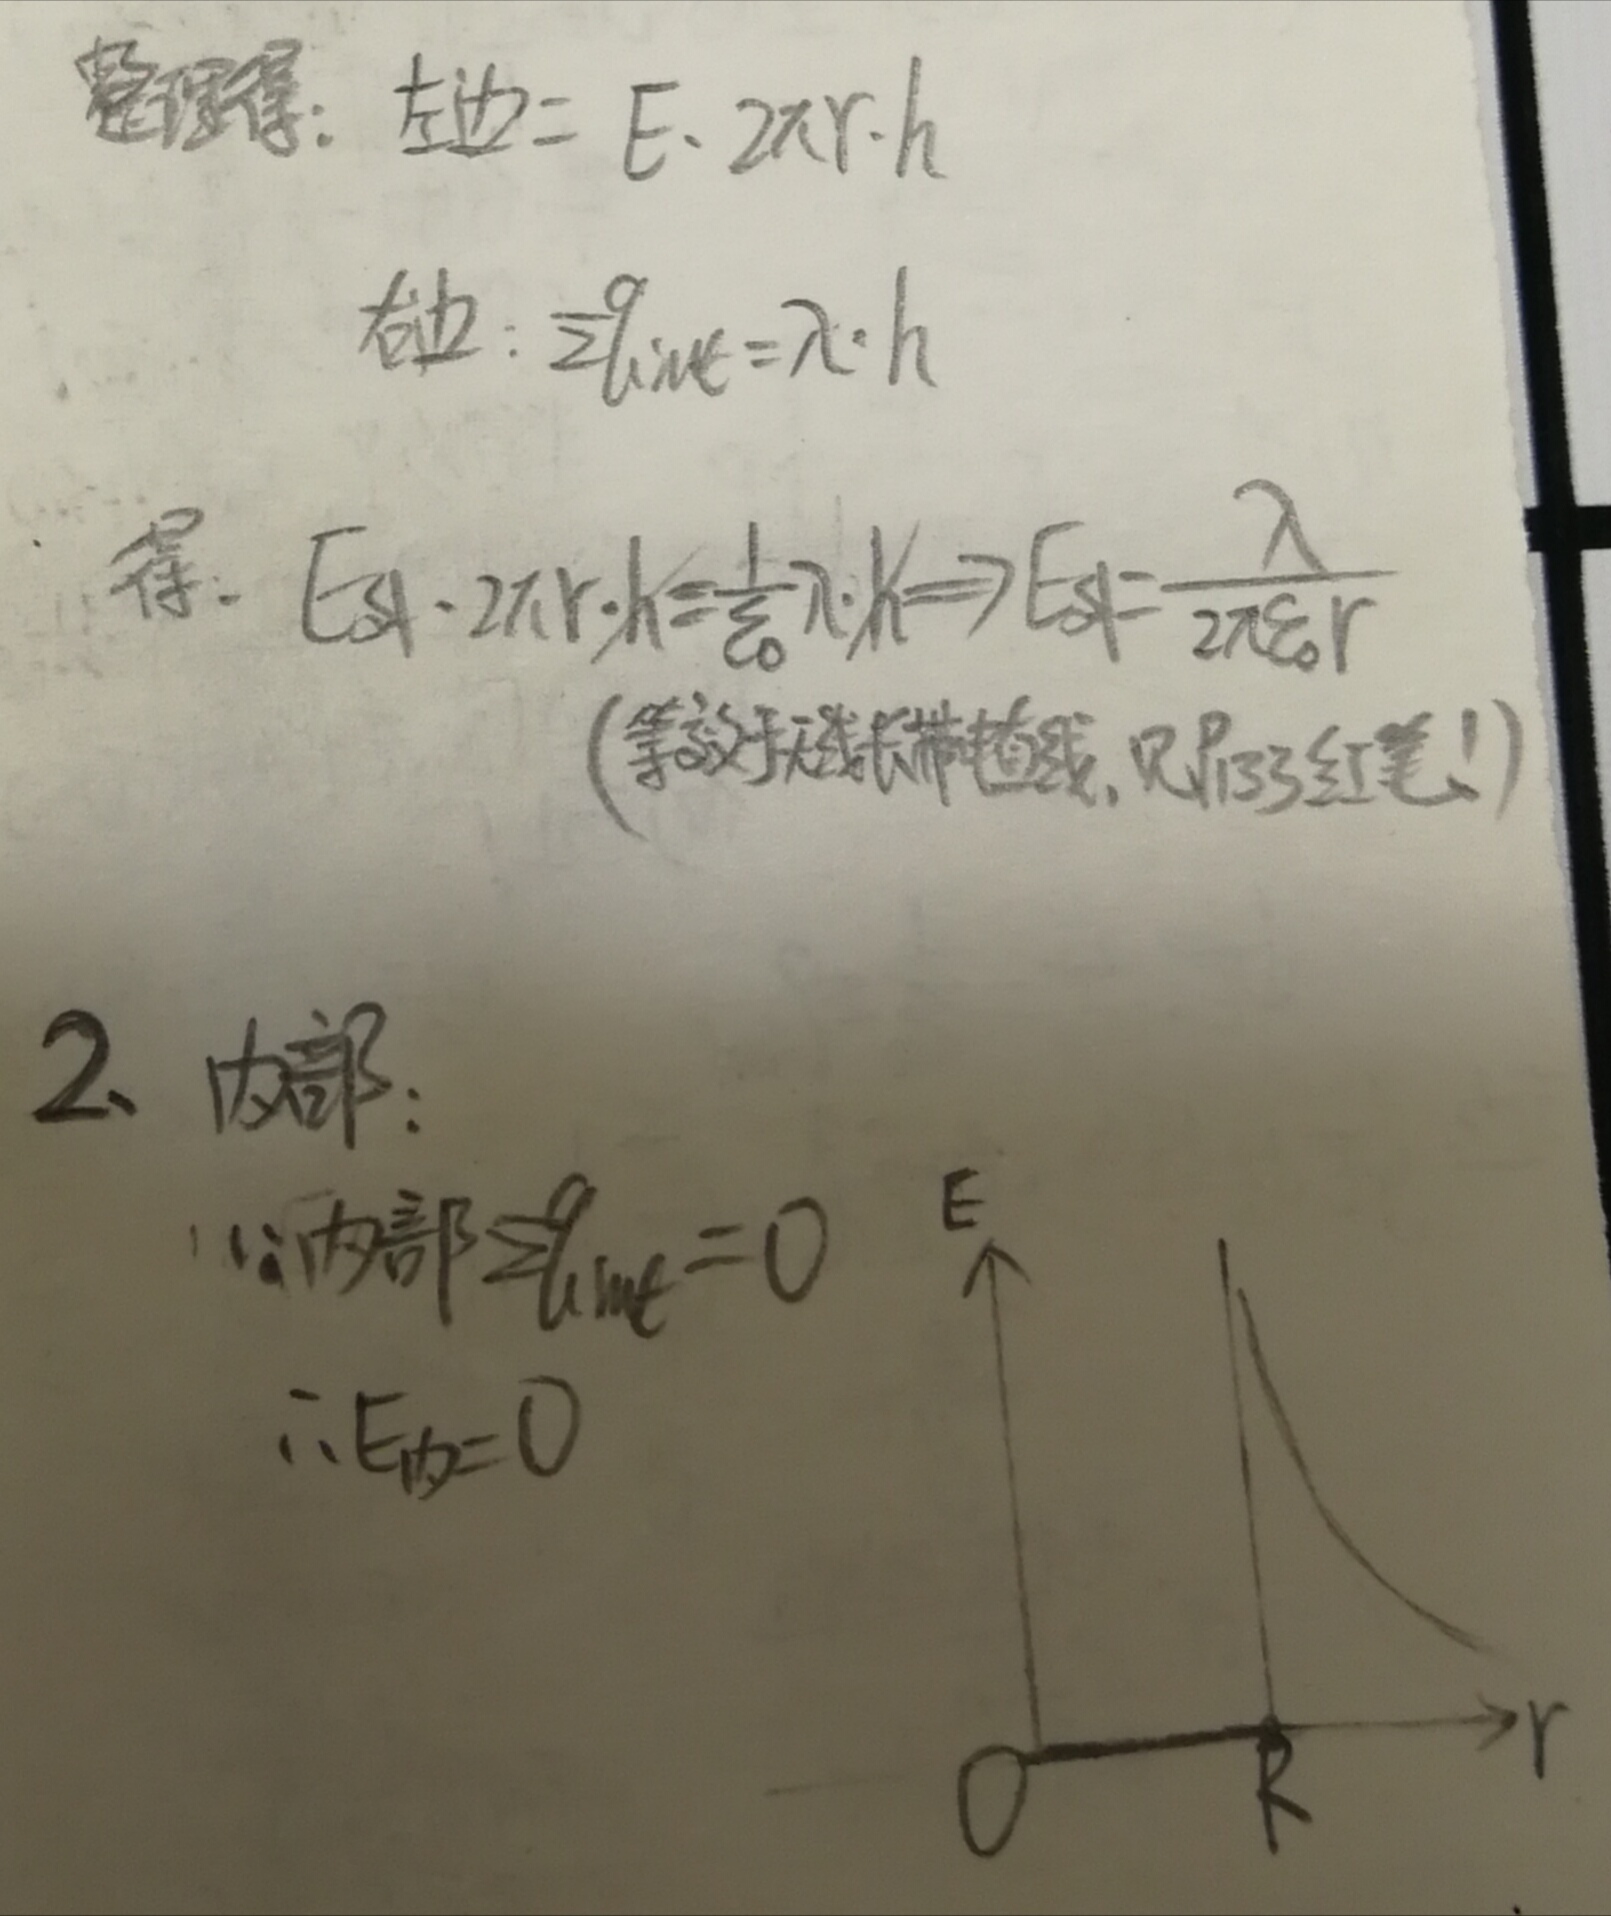 整理得: 左边= E·2πr·h
右边: Σqint=λ·h
得: E外·2πr·h=1/ε0 λ·h⇒E外=λ/2πε0r
(等效于无线长带电直线,只用了红笔!)
2、内部:
∵内部Σqint=0
∴E内=0
E
O R r